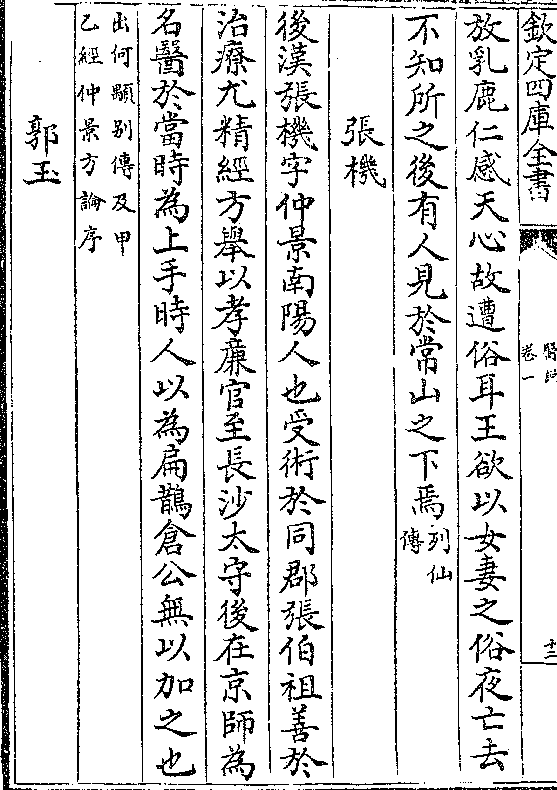 欽定四庫全書
醫説
卷一
十二
放乳鹿仁感天心故遭俗耳王欲以女妻之俗夜亡去
不知所之後有人見於常山之下焉列仙
傳
張機
後漢張機字仲景南陽人也受術於同郡張伯祖善於
治療尤精經方舉以孝廉官至長沙太守後在京師為
名醫於當時為上手時人以為扁鵲倉公無以加之也
出何顒别傳及甲
乙經仲景方論序
郭玉